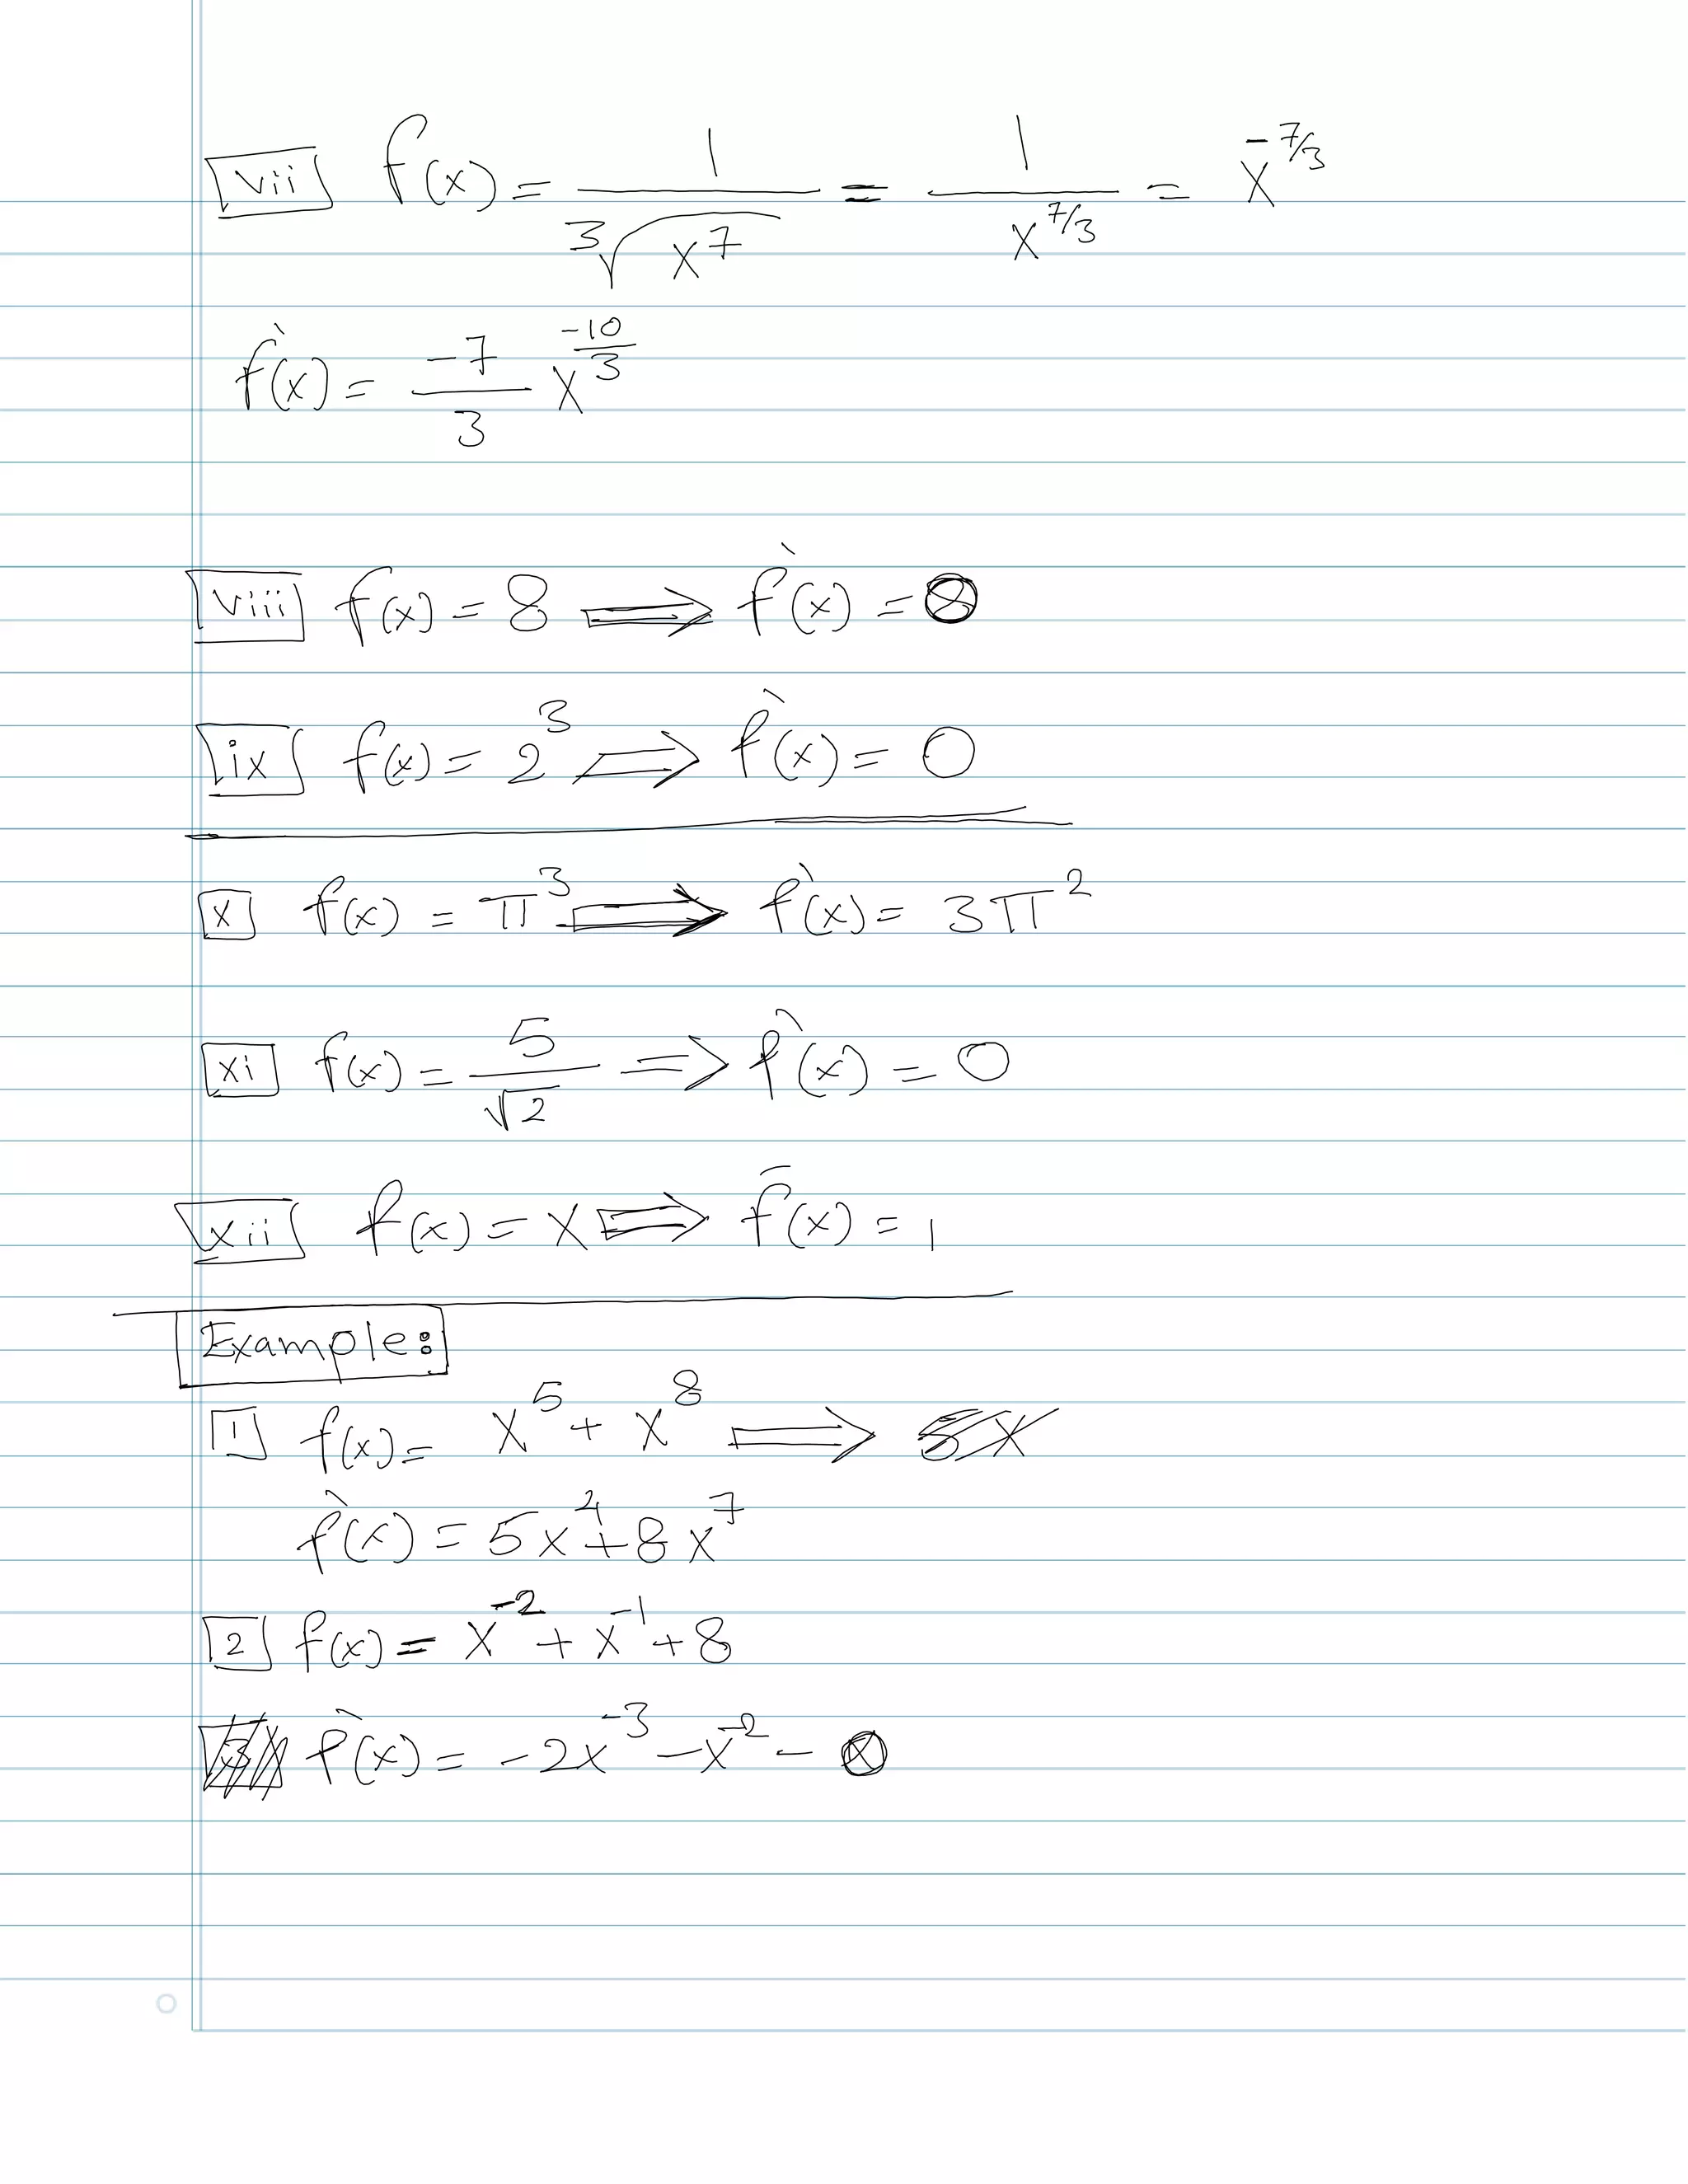 vii f(x) = 1/∛(x^7) = 1/x^(7/3) = x^(-7/3)
f'(x) = -7/3 x^(-10/3)
viii f(x) = 8 ⟹ f'(x) =
ix f(x) = 2^3 ⟹ f'(x) = 0
x f(x) = π^3 ⟹ f'(x) = 3π^2
xi f(x) = 5/√2 ⟹ f'(x) = 0
xii f(x) = x ⟹ f'(x) = 1
Example:
1 f(x) = x^5 + x^8 ⟹ 5x
f'(x) = 5x^4 + 8x^7
2 f(x) = x^-2 + x^-1 + 8
f'(x) = -2x^-3 - x^-2 -